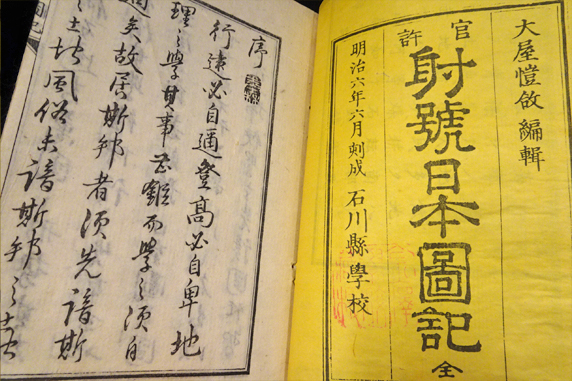 大屋愷敆 編輯
官許
射號日本圖記 全
明治六年六月刻成 石川縣學校
序
行遠必自邇登高必自卑地
理之學其事甚難而學之須自
邇矣故居斯邦者須先諳斯
之土地風俗未諳斯邦之土
圖記